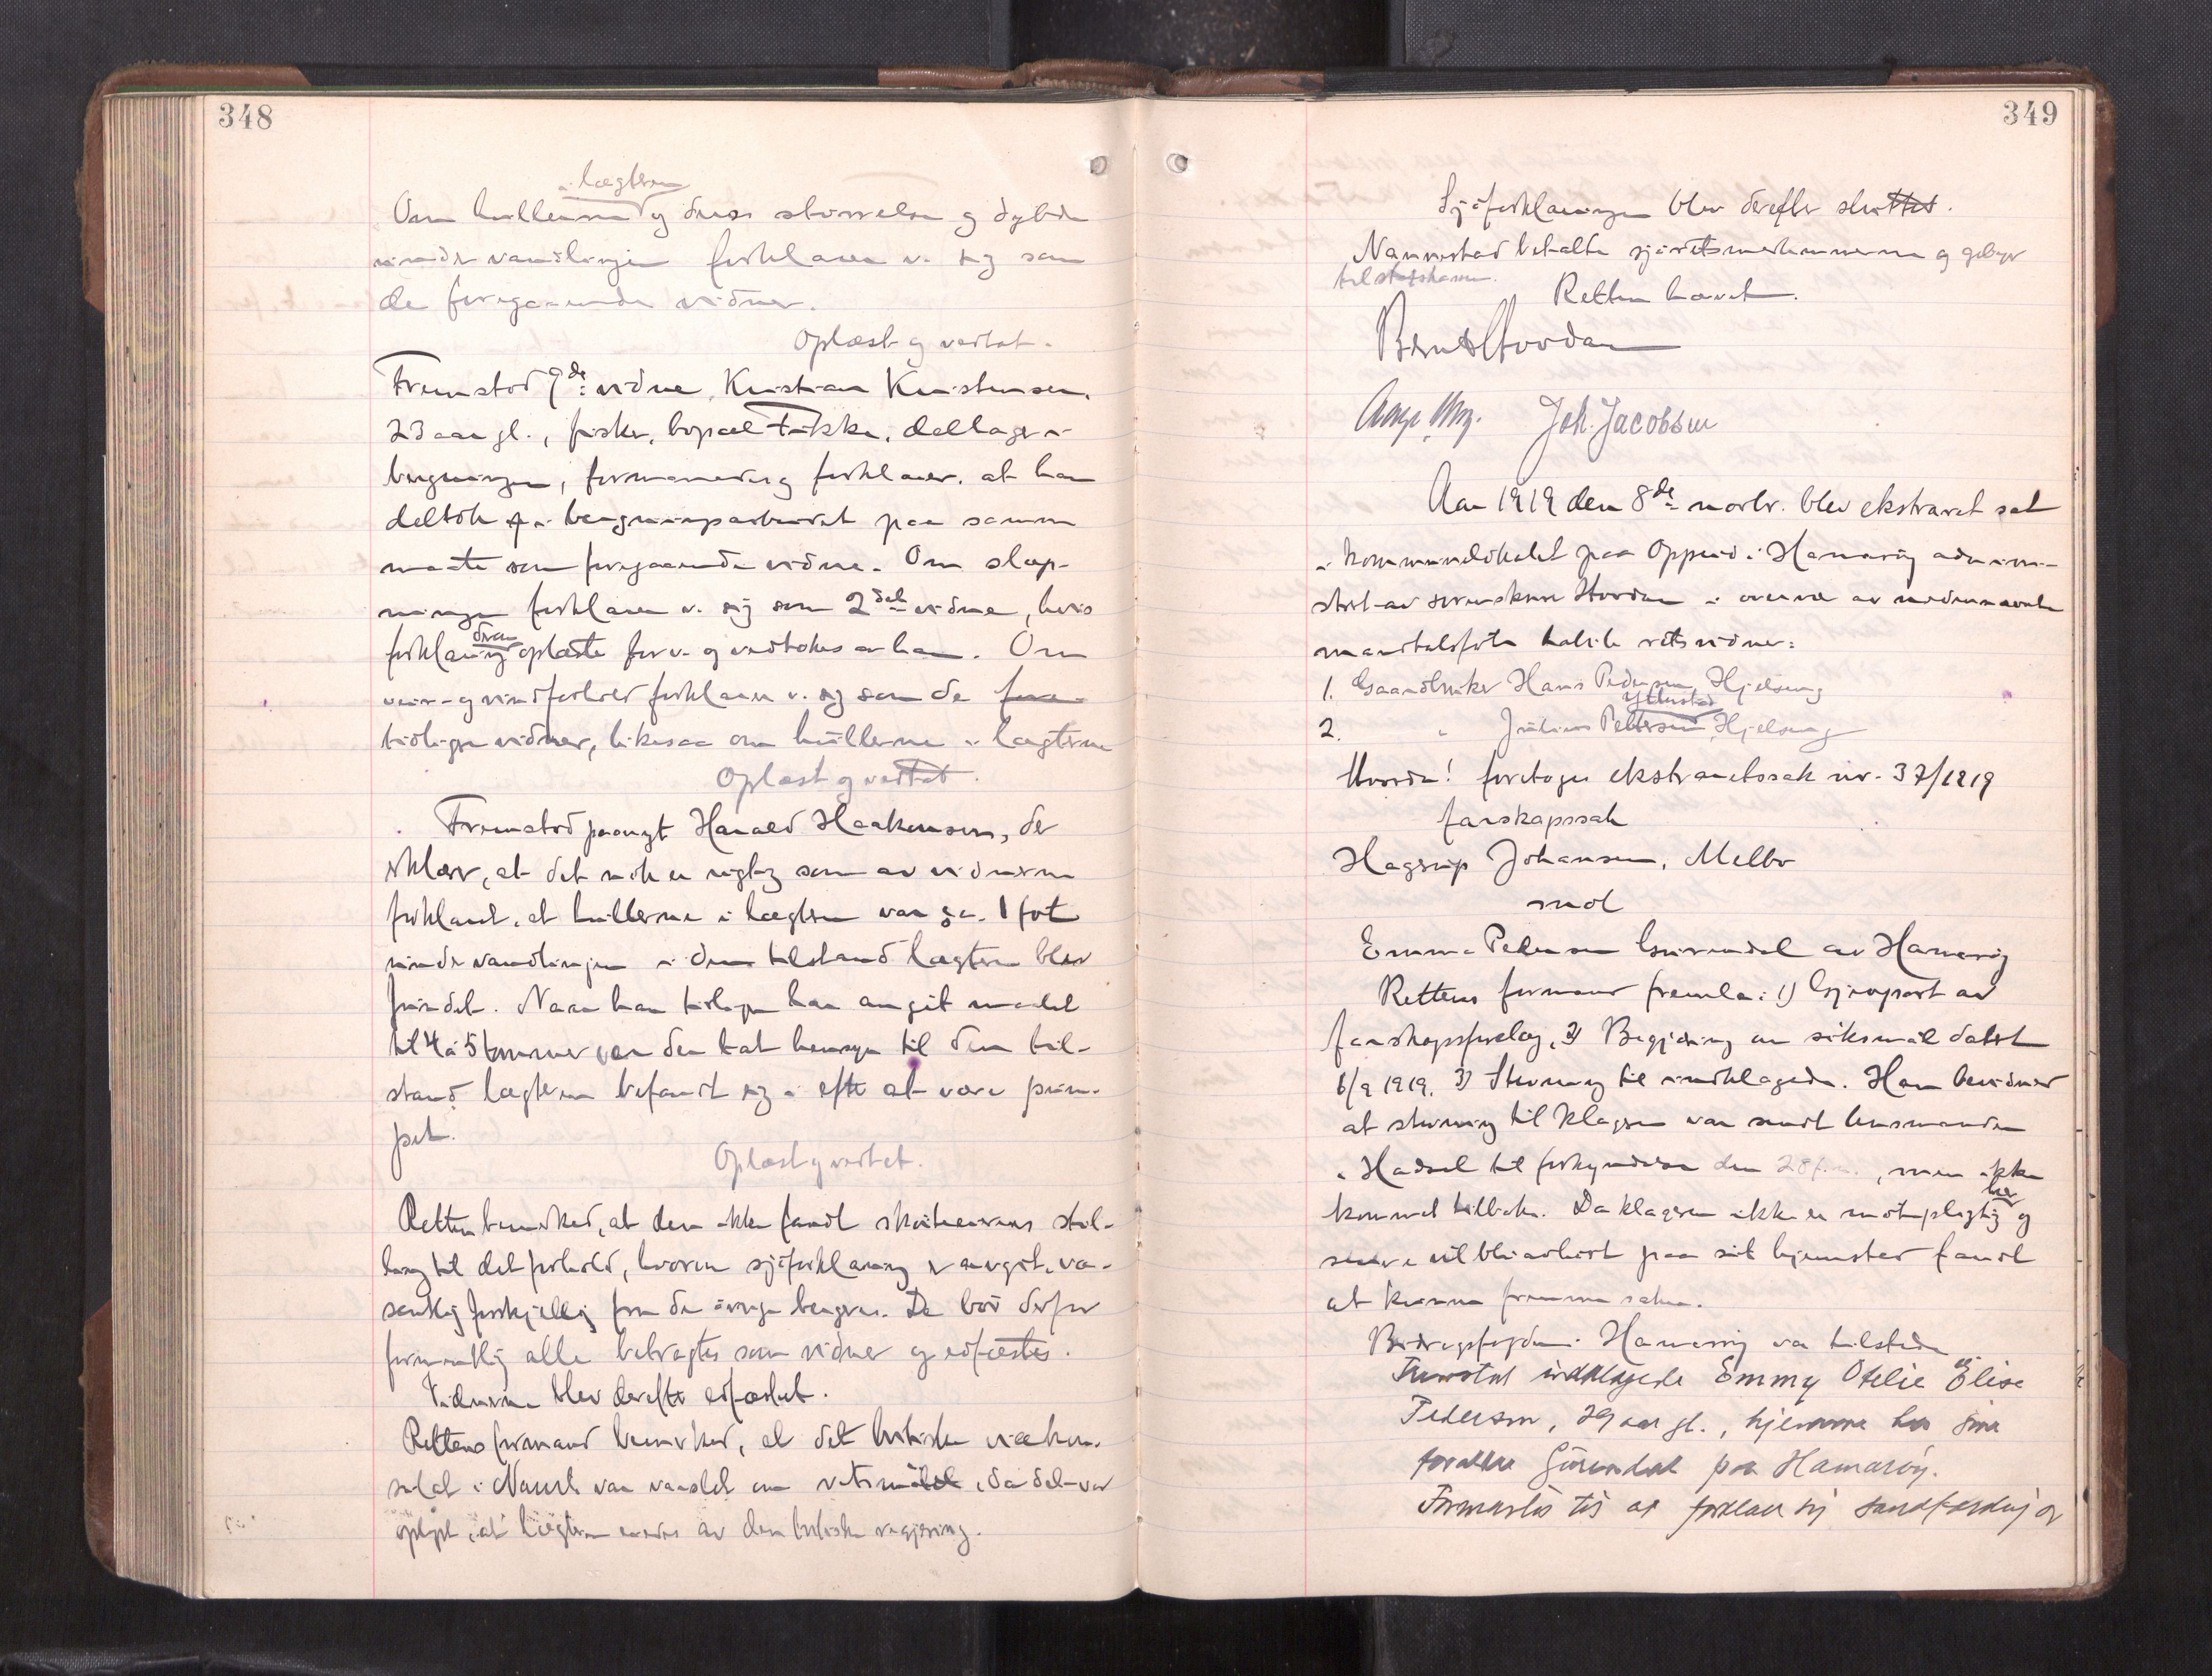 348
i lægteren
Om hullerne og deres størrelse og dybde
under vandlinjen forklarer v. sig som
de foregaaende vidner.
Oplæst og vedtat.
Fremstod 9de vidne, Kristian Kristensen,
23 aar gl., fisker, bopæl, deltager i
bergningen, formanedes og forklarer, at han
deltok i bergningsarbeidet paa samme
maate som foregaaende vidne. Om slæp-
ningen forklarer v. sig som 2det vidne, hvis
forklaring oplæstes for v. og vedtokes av ham. Om
veir- og vindforhold forklarer v. sig som de fore-
tidligere vidner, likesaa om hullerne i lægteren
Oplæst og vedtat.
Fremstod paanyt Harald Haakensen, der
erklærer, at det nok er rigtig som av vidnerne
forklaret, at hullerne i lægteren var ca. 1 fot
under vandlinjen i den tilstand lægteren blev
fundet. Naar han tidligere har angit maalet
til 4 à 5 tommer var den tat hensyn til den til-
stand lægteren befandt sig i efter at være pum-
pet.
Oplæst og vedtat.
Retten bemerket, at den ikke fandt skøiteeierens stil-
ling til det forhold, hvorom sjøforklaring er avgit, væ-
sentlig forskjellig fra de øvrige bergere. De bør derfor
formentlig alle betragtes som vidner og edfæstes.
Vidnerne blev derefter edfæstet.
Rettens formand bemerket, at det britiske vicekon-
sulat i Narvik var varslet om retsmøtet, da det var
oplyst, at lægteren eiedes av den britiske regjering.
349
Sjøforklaringen blev derefter sluttet.
Nannestad betalte sjøretsmedlemmerne og gebyr
til statskassen.
Retten hævet.
Joh. Jacobsen
Aar 1919 den 8de novbr. blev ekstraret sat
i kommunelokalet paa Oppeid i Hamarøy admini-
stret av sorenskriver Hovdan i overvær av nedennævnte
mandtalsførte habile retsvidner:
1. Gaardbruker Hans Pedersen, Hjelseng
Ytterstad
2. " Julius Pettersen, Hjelseng
Hvorda! foretoges ekstraretssak nr. 37/1919
farskapssak
Hagerup Johansen, Melbo
mot
Emma Pedersen Gurendal av Hamarøy
Rettens formand fremla: 1) Gjenpart av
farskapsforelæg, 2) Begjæring om søksmål datert
6/9 1919, 3) Stevning til indklagede. Han bevidnet
at stevning til klageren var sendt lensmanden
i Hadsel til forkyndelse den, men ikke
her
kommet tilbake. Da klageren ikke er møtepligtig og
senere vil bli avhørt paa sit hjemsted fandt
at kunne fremme saken.
Bidragsfogden i Hamarøy var tilstede
Fremstod indklagede Emmy Otelie Elise
Pedersen, 29 aar gl., hjemme hos sine
forældre Gurendal paa Hamarøy.
Formantes til at forklare sig sandfærdig og